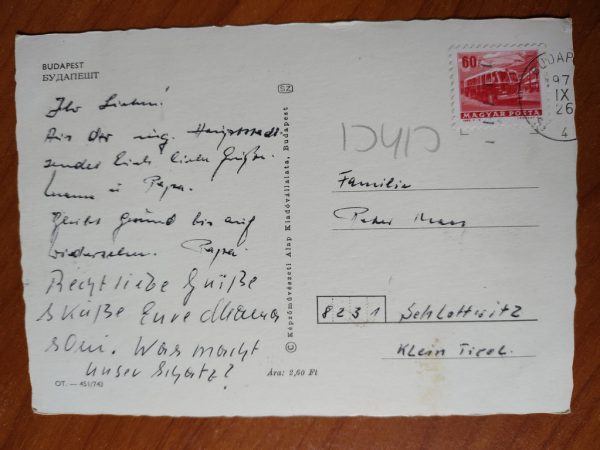 BUDAPEST
БУДАПЕШТ
Ihr Lieben!
Aus der ung. Hauptstadt
sendet Euch liebe Grüße
Mama u. Papa.
Bleibt gesund bis auf
wiedersehn. Papa.
Recht liebe Grüße
& Küße Eure Mama
& Omi. Was macht
unser Schatz?
OT. — 451/743
SZ
© Képzőművészeti Alap Kiadóvállalata, Budapest
Ára: 2,60 Ft
60f
MAGYAR POSTA
BUDAP
97
IX
26
4
Familie
Peter
8231 Schlottwitz
Klein Tirol.